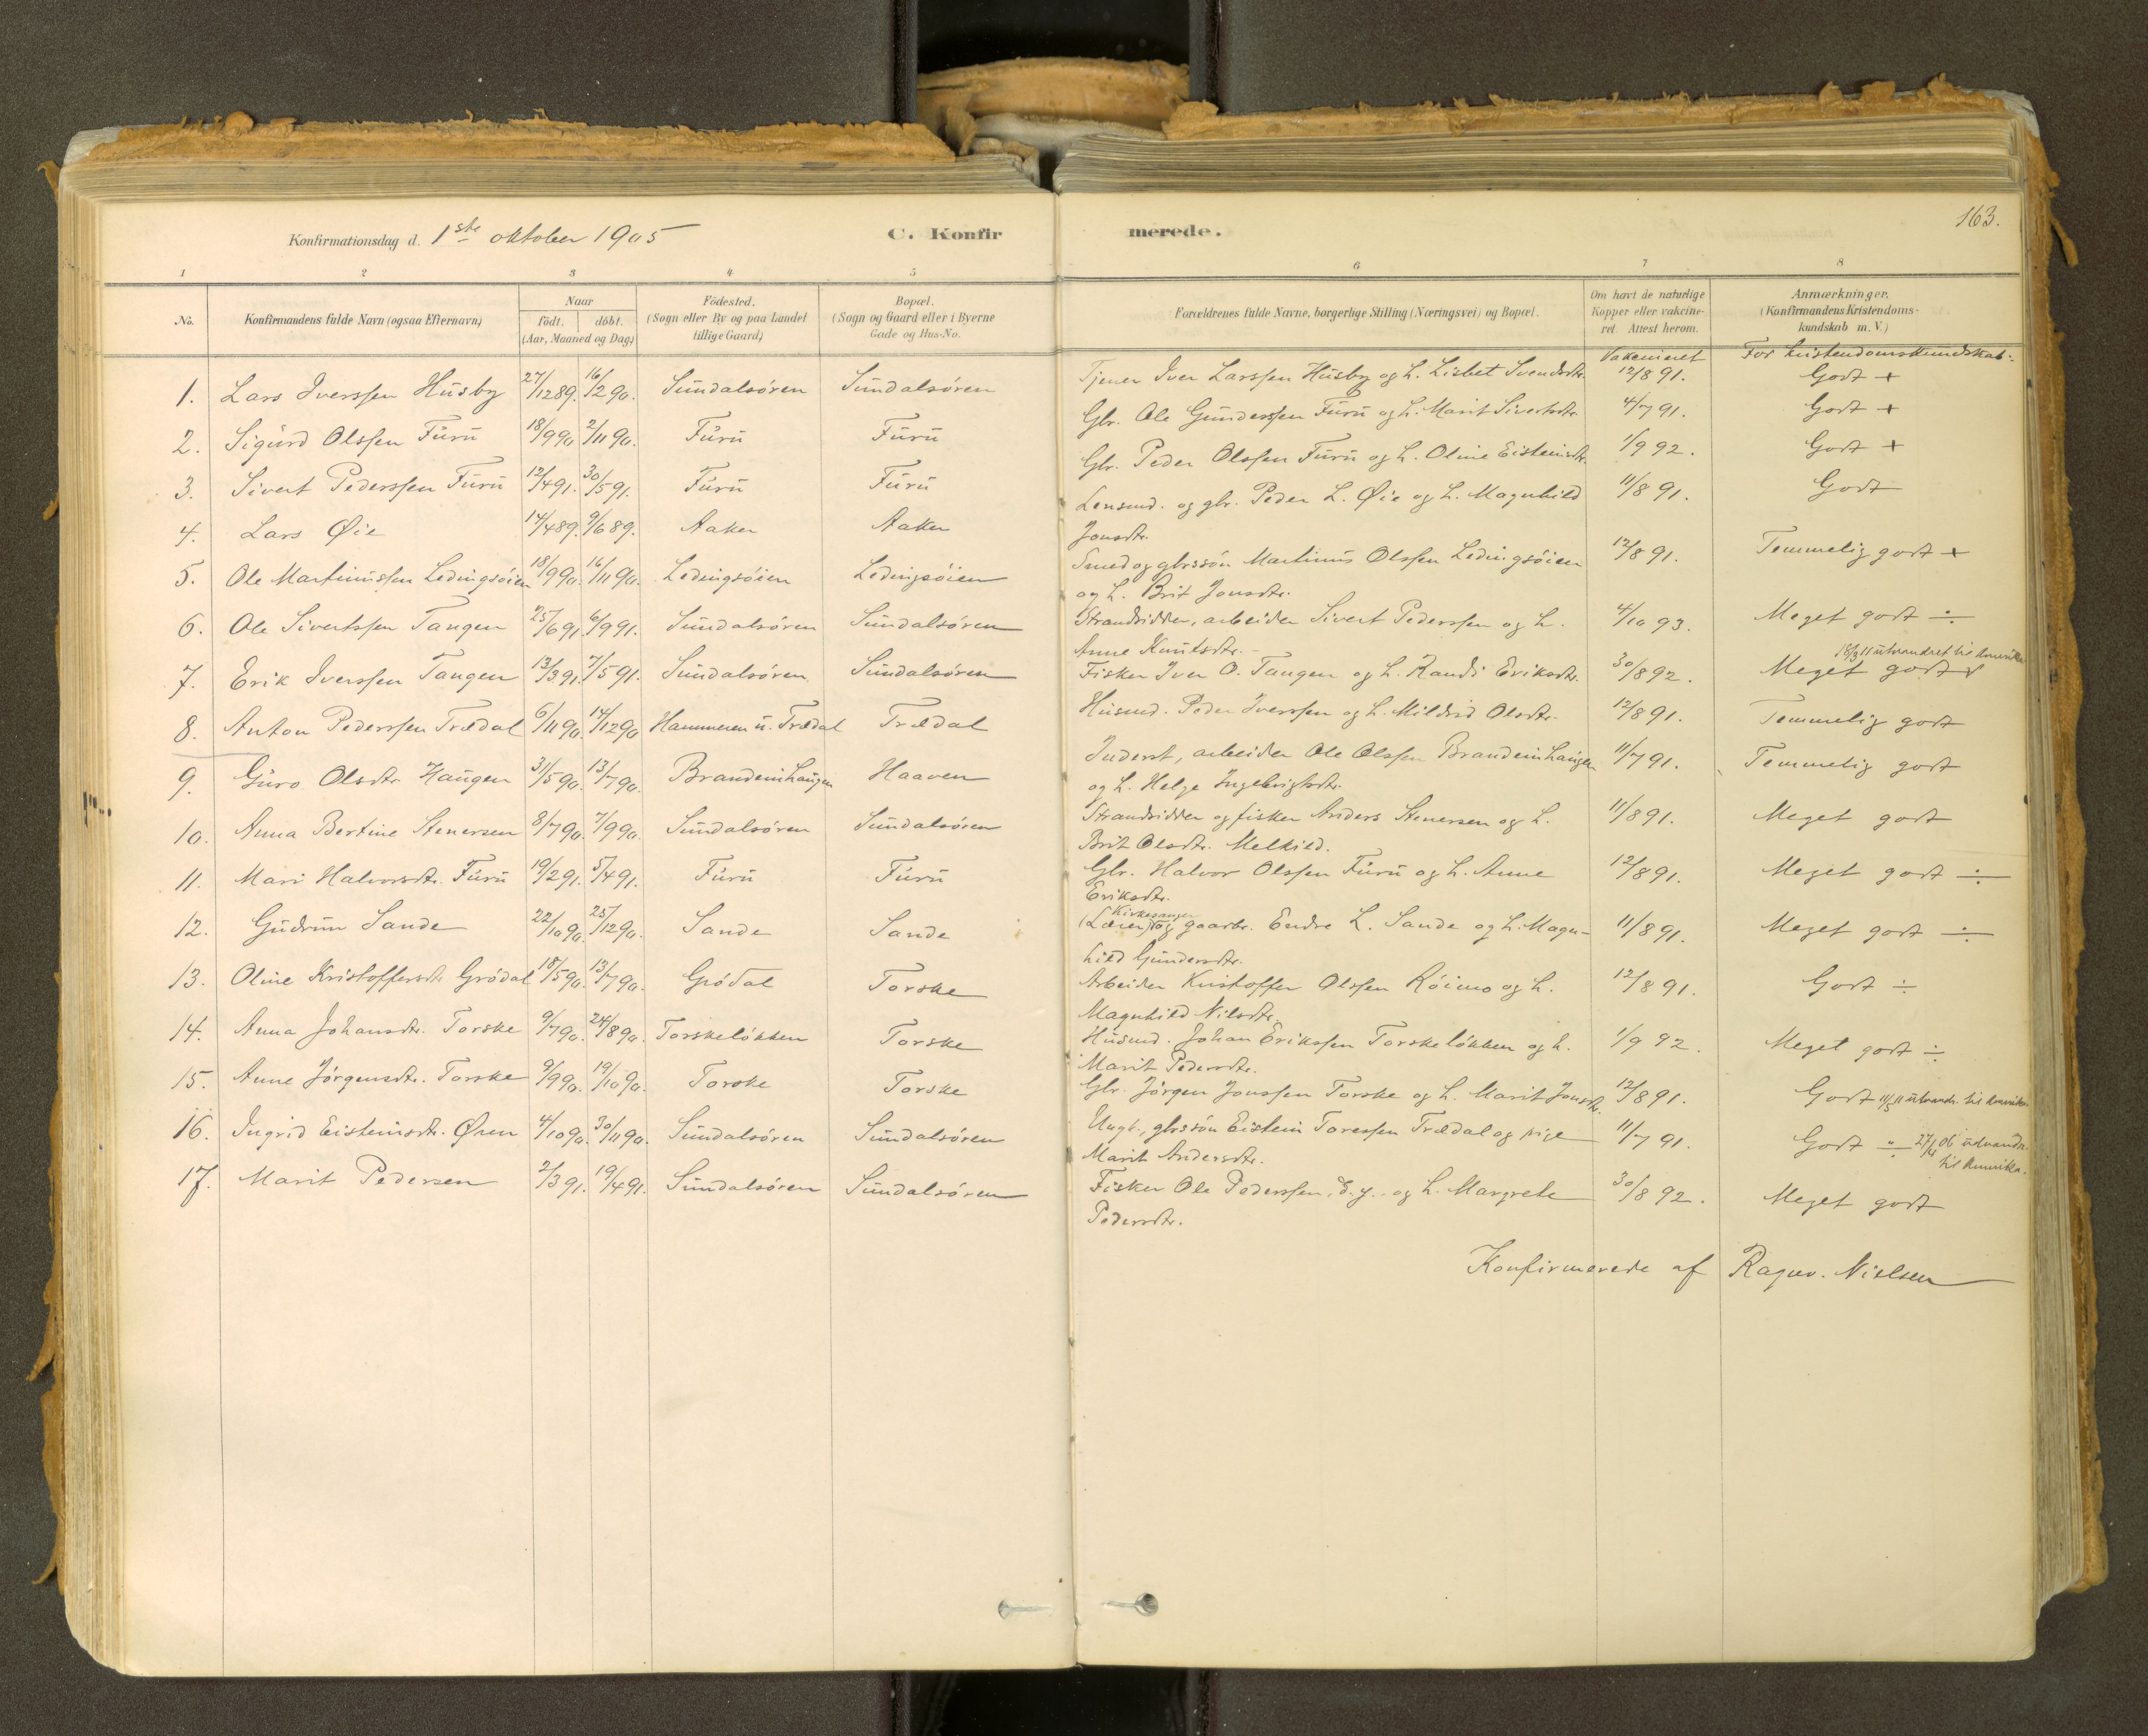 Konfirmationsdag d. 1ste oktober 1905
C. Konfir
merede.
163.
1 2 3 4 5 6 7 8
No.
Konfirmandens fulde Navn (ogsaa Efternavn)
Naar
födt. döbt.
(Aar, Maaned og Dag)
Födested.
(Sogn eller By og paa Landet
tillige Gaard)
Bopæl.
(Sogn og Gaard eller i Byerne
Gade og Hus-No.
Forældrenes fulde Navne, borgerlige Stilling (Næringsvei) og Bopæl.
Om havt de naturlige
Kopper eller vakcine-
ret. Attest herom.
Anmærkninger.
(Konfirmandens Kristendoms-
kundskab m. V.)
Vakcineret For kristendomskundskab:
1. Lars Iverssen Husby 27/12 89. 16/2 90. Sundalsören Sundalsören Tjener Iver Larssen Husby og h. Lisbet Svendsdtr. 12/8 91. Godt +
2. Sigurd Olssen Furu 18/9 90 2/11 90. Furu Furu Gbr. Ole Gunderssen Furu og h. Marit Sivertsdtr. 4/7 91. Godt +
3. Sivert Pederssen Furu 12/4 91. 30/5 91. Furu Furu Gbr. Peder Olssen Furu og h. Oline Eisteinsdtr. 1/9 92. Godt +
4. Lars Øie 14/4 89. 9/6 89. Aaker Aaker Lensmd. og gbr. Peder L. Øie og h. Magnhild 11/8 91. Godt
Jonsdtr.
5. Ole Martinussen Ledingsöien 18/9 90. 16/11 90. Ledingsöien Ledingsöien Smed og gbrssön Martinus Olssen Ledingsöien 12/8 91. Temmelig godt +
og h. Brit Jonsdtr.
6. Ole Sivertssen Tangen 25/6 91. 6/9 91. Sundalsören Sundalsören Strandsidder, arbeider Sivert Pederssen og h. 4/10 93. Meget godt ÷
Anne Knutsdtr.
18/3 11 utvandret til Amerika
7. Erik Iverssen Tangen 13/3 91. 7/5 91. Sundalsören Sundalsören Fisker Iver O. Tangen og h. Randi Eriksdtr. 30/8 92. Meget godt
8. Anton Pederssen Trædal 6/11 90. 14/12 90 Hammeren u. Trædal Trædal Husmd. Peder Iverssen og h. Mildrid Olsdtr. 12/8 91. Temmelig godt
9. Guro Olsdtr. Haugen 31/5 90. 13/7 90. Brandeinhaugen Haaven Inderst, arbeider Ole Olssen Brandeinhaugen 11/7 91. Temmelig godt
og h. Helge Ingebrigtsdtr.
10. Anna Bertine Stenersen 8/7 90. 7/9 90. Sundalsören Sundalsören Strandsidder og fisker Anders Stenersen og h. 11/8 91. Meget godt
Brit Olsdtr. Melkild.
11. Mari Halvorsdtr. Furu 19/2 91. 5/4 91. Furu Furu Gbr. Halvor Olssen Furu og h. Anne 12/8 91. Meget godt ÷
Eriksdtr.
Kirkesanger
12. Gudrun Sande 22/10 90. 25/12 90. Sande Sande (Lærer) og gaarbr. Endre L. Sande og h. Magn- 11/8 91. Meget godt ÷
hild Gundersdtr.
13. Oline Kristoffersdtr. Grödal 18/5 90. 13/7 90. Grödal Torske Arbeider Kristoffer Olssen Röimo og h. 12/8 91. Godt ÷
Magnhild Nilsdtr.
14. Anna Johansdtr. Torske 9/7 90. 24/8 90. Torskelökken Torske Husmd. Johan Erikssen Torskelökken og h. 1/9 92. Meget godt ÷
Marit Pedersdtr.
15. Anne Jörgensdtr. Torske 9/9 90. 19/10 90. Torske Torske Gbr. Jörgen Jonssen Torske og h. Marit Jonsdtr. 12/8 91. Godt 11/5 11 utvandr. til Amerika
16. Ingrid Eisteinsdtr. Øren 4/10 90. 30/11 90. Sundalsören Sundalsören Ungk., gbrssön Eistein Toressen Trædal og pige 11/7 91. Godt ÷ 27/4 06 udvandr.
Marit Andersdtr. til Amerika.
17. Marit Pedersen 2/3 91. 19/4 91. Sundalsören Sundalsören Fisker Ole Pederssen, d.y. og h. Margrete 30/8 92. Meget godt
Pedersdtr.
Konfirmerede af Ragnv. Nielsen